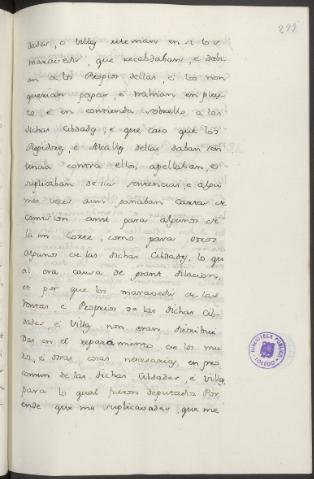 292
dades, e Villas retenian en si los
maravedis, que recabdaban, e debi
an a los Propios dellas, e los non
querian pagar, e trahian en pley
to, e en contienda sobrello a las
dichas Cibdades, e que caso que los
Regidores, e Alcalles dellas daban sen
tencia contra ellos, apellaban, e
suplicaban de sus sentencias, e algu
nas veces aun ganaban cartas de
comision ante para algunos de
la mi Corte, como para otros
algunos de las dichas Cibdades, lo qu
al era causa de grant dilacion,
es por que los maravedis de las
rentas e Propios de las dichas Cib
dades, e Villas non eran distribui
das en el reparamiento de los mu
ros, e otras cosas necesarias en pro
comun de las dichas Cibdades, e Villas
para lo qual fueron deputados Por
ende que me suplicavades, que me
BIBLIOTECA PUBLICA
TOLEDO